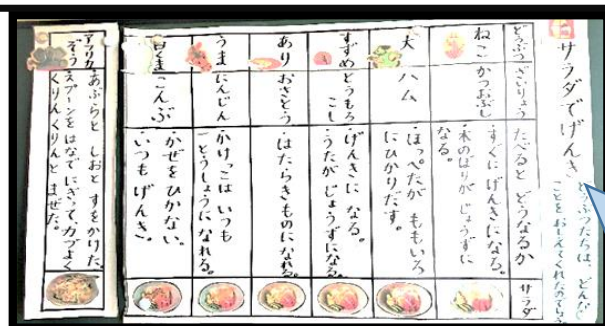 サラダでげんき
どうぶつたちは、どんな
ことをおしえてくれたのでしょう
どうぶつ
ざいりょう
たべると どうなるか
サラダ
ねこ
かつおぶし
・すぐにげんきになる。
・木のぼりが じょうずに
なる。
犬
ハム
・ほっぺたが ももいろ
にひかりだす。
すずめ
とうもろ
こし
・げんきになる。
・うたが じょうずになる。
あり
おさとう
・はたらきものになれる。
うま
にんじん
・かけっこは いつも
一とうしょうになれる。
白くま
こんぶ
・かぜをひかない。
・いつもげんき。
アフリカ
ぞう
あぶらと しおと すをかけた。
スプーンをはなでにぎって、力づよく
くりんくりんと まぜた。